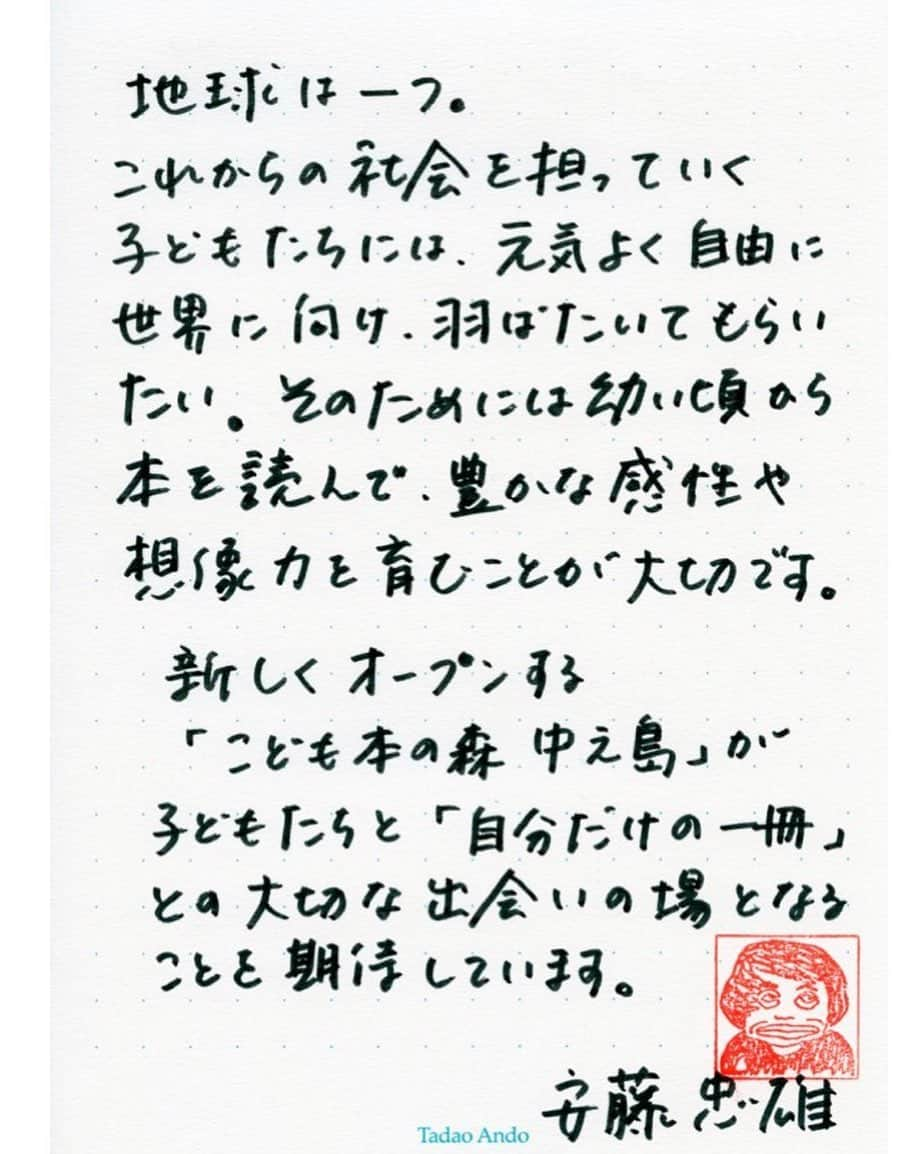 地球は一つ。
これからの社会を担っていく
子どもたちには、元気よく自由に
世界に向け、羽ばたいてもらい
たい。そのためには幼い頃から
本を読んで、豊かな感性や
想像力を育むことが大切です。
新しくオープンする
「こども本の森 中之島」が
子どもたちと「自分だけの一冊」
との大切な出会いの場となる
ことを期待しています。
安藤忠雄
Tadao Ando